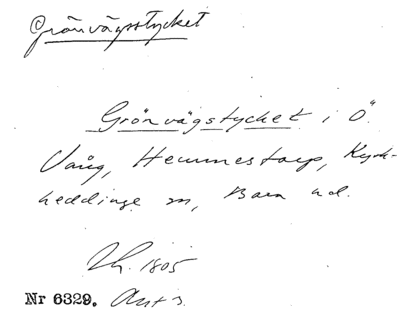 Grönvägsstycket
Grönvägstycket i Ö
Vång, Hemmestorp, Kyrk-
heddinge sn, Bara hd.
1805
Nr 6329.